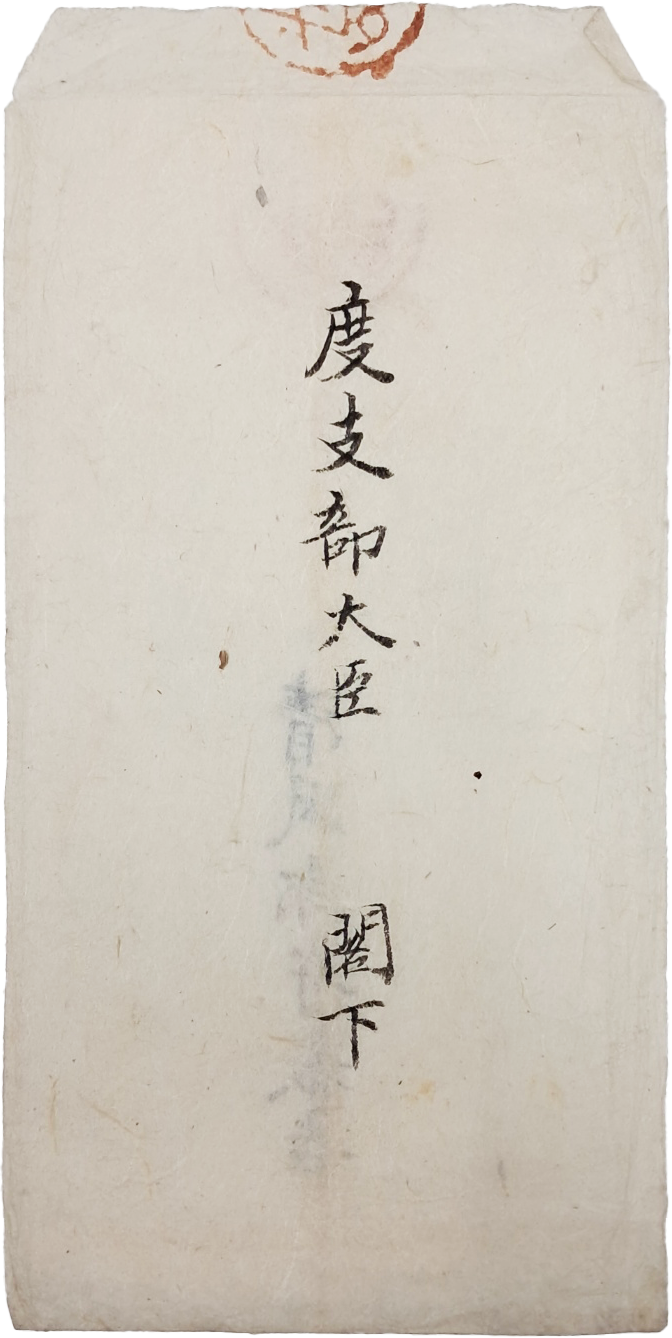 度支部大臣 閣下